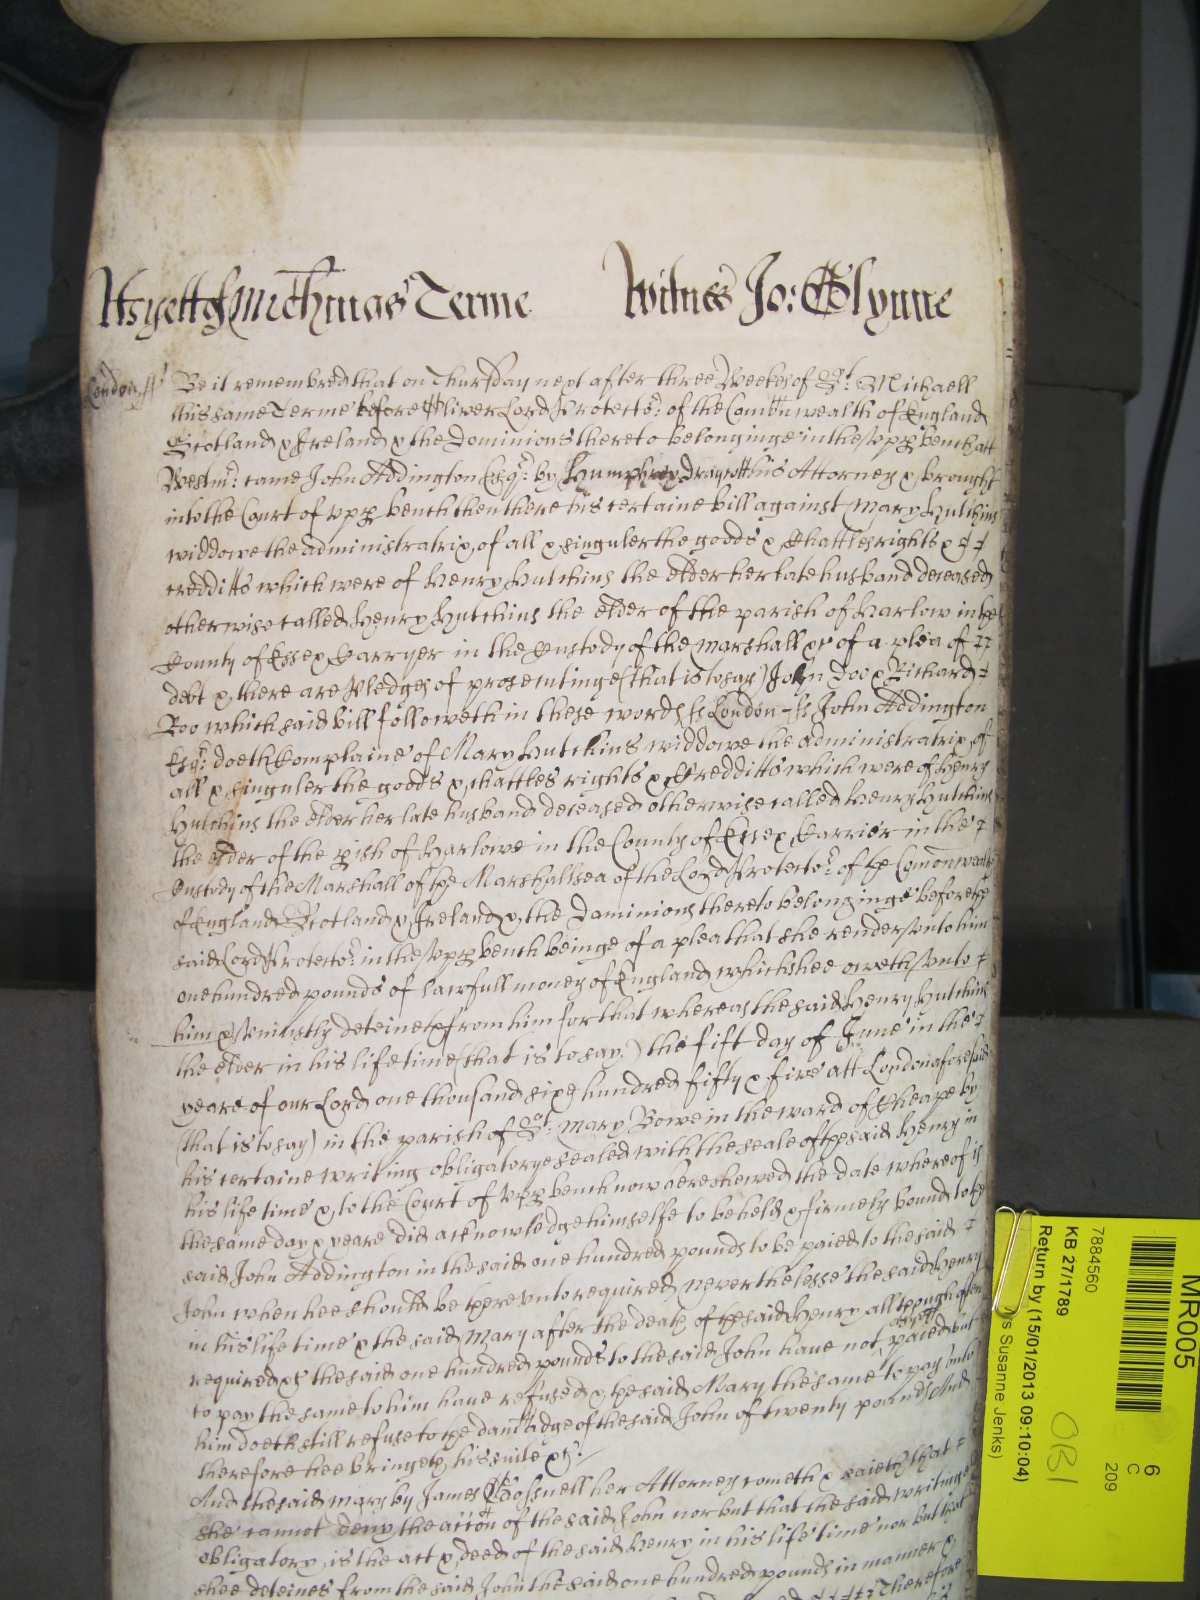 As yett of Mich'mas Terme Witnes Jo: Glynne
London ss Be it remembred that on Thursday next after three Weekes of St. Michaell
this same Terme before Oliver Lord Protector of the Com'onwealth of England
Scotland & Ireland & the Dominions thereto belonginge in the upp bench att
Westmr: came John Addington Esqr: by Humphrey Drayton his Attorney & brought
into the Court of upp bench then there his certaine bill against Mary Hutchins
widdowe the administratrix of all & singuler the goods & Chattles rights &
creditts which were of Henry Hutchins the elder her late husband deceased
otherwise called Henry Hutchins the elder of the parish of Harlow in the
County of Essex Carryer in the Custody of the Marshall &c of a plea of
debt & there are Pledges of prosecutinge (that is to say) John Doo & Richard
Roo which said bill followeth in these words ss London ss John Addington
Esqr: doeth Complaine of Mary Hutchins widdowe the administratrix of
all & singuler the goods & chattles rights & Creditts which were of Henry
Hutchins the elder her late husband deceased otherwise called Henry Hutchins
the elder of the pish of Harlowe in the County of Essex Carrier in the
Custody of the Marshall of the Marshallsea of the Lord Protector of the Com'onwealth
of England Scotland & Ireland & the Dominions thereto belonginge before the
said Lord Protector in the upp bench beinge of a plea that she render unto him
one hundred pounds of lawfull money of England which shee oweth unto
him & uniustly deteineth from him for that whereas the said Henry Hutchins
the elder in his life time (that is to say) the fift day of June in the
yeare of our Lord one thousand six hundred fifty & five att London aforesaid
(that is to say) in the parish of St. Mary Bowe in the ward of Cheape by
his certaine writing obligatorye sealed with the seale of the said Henry in
his life time & to the Court of upp bench now here shewed the date whereof is
the same day & yeare did acknowledge himselfe to be held & firmely bound to the
said John Addington in the said one hundred pounds to be paied to the said
John when hee should be thereunto required Neverthelesse the said Henry
in his life time & the said Mary after the death of the said Henry although often
required &c the said one hundred pounds to the said John have not paied but
to pay the same to him have refused & the said Mary the same to pay unto
him doeth still refuse to the dam'adge of the said John of twenty pounds And
therefore hee bringeth his suite &c
And the said Mary by James Gosnell her Attorney cometh & saieth that
she cannot deny the acc'on of the said John nor but that the said writinge
obligatory is the act & deed of the said Henry in his life time nor but that
shee deteines from the said John the said one hundred pounds in manner &
Therefore
MR005
6
C
209
7884560
KB 27/1789
Return by (15/01/2013 09:10:04)
s Susanne Jenks)
OBI